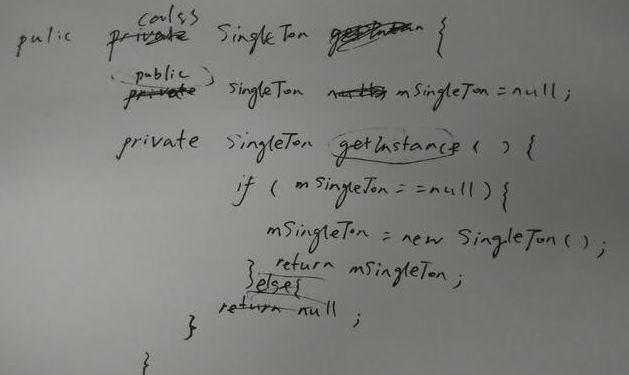 pulic coulss SingleTon {
public singleTon mSingleTon = null;
private SingleTon getInstance ( ) {
if ( mSingleTon = = null ) {
mSingleTon = new SingleTon ( ) ;
return mSingleTon ;
} else {
return null ;
}
}